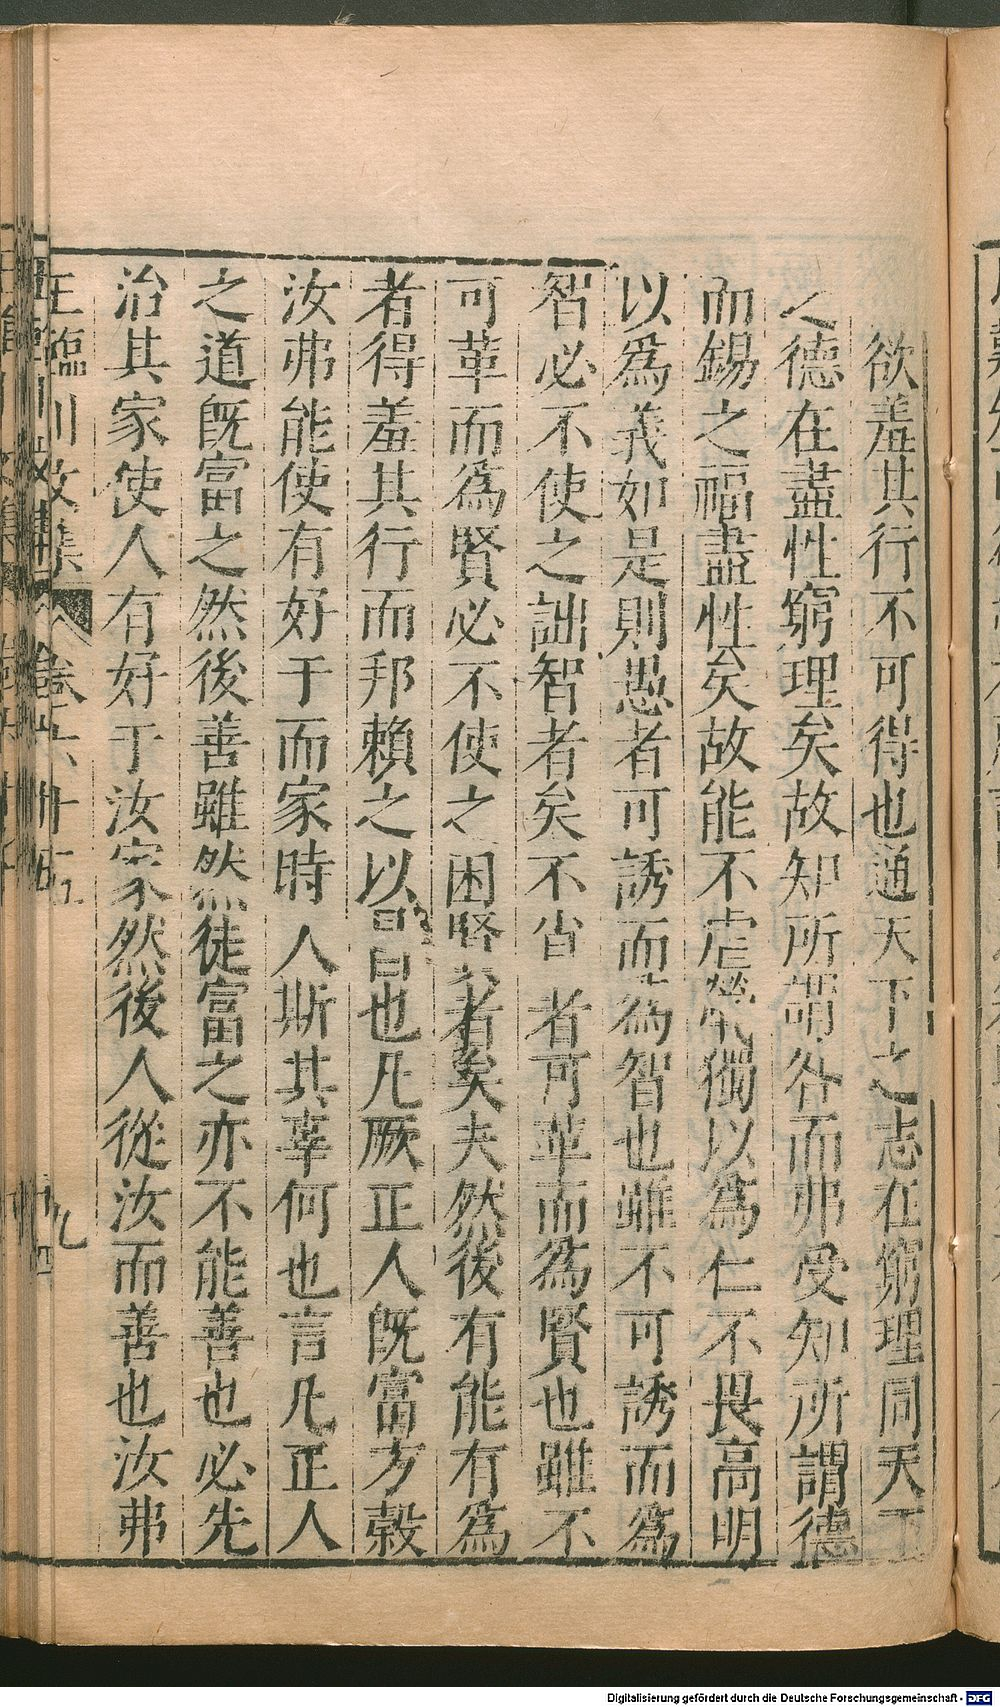 欲羞其行不可得也通天下之志在窮理同天下
之德在盡性窮理矣故知所謂咎而弗受知所謂德
而錫之福盡性矣故能不虐煢獨以爲仁不畏高明
以爲義如是則愚者可誘而爲智也雖不可誘而爲
智必不使之詘智者矣不肖者可革而爲賢也雖不
可革而爲賢必不使之困賢者矣夫然後有能有爲
者得羞其行而邦賴之以昌也凡厥正人旣富方榖
汝弗能使有好于而家時人斯其辜何也言凡正人
之道旣富之然後善雖然徒富之亦不能善也必先
治其家使人有好于汝家然後人從汝而善也汝弗
王臨川文集 卷六十五 九
Digitalisierung gefördert durch die Deutsche Forschungsgemeinschaft - DFG